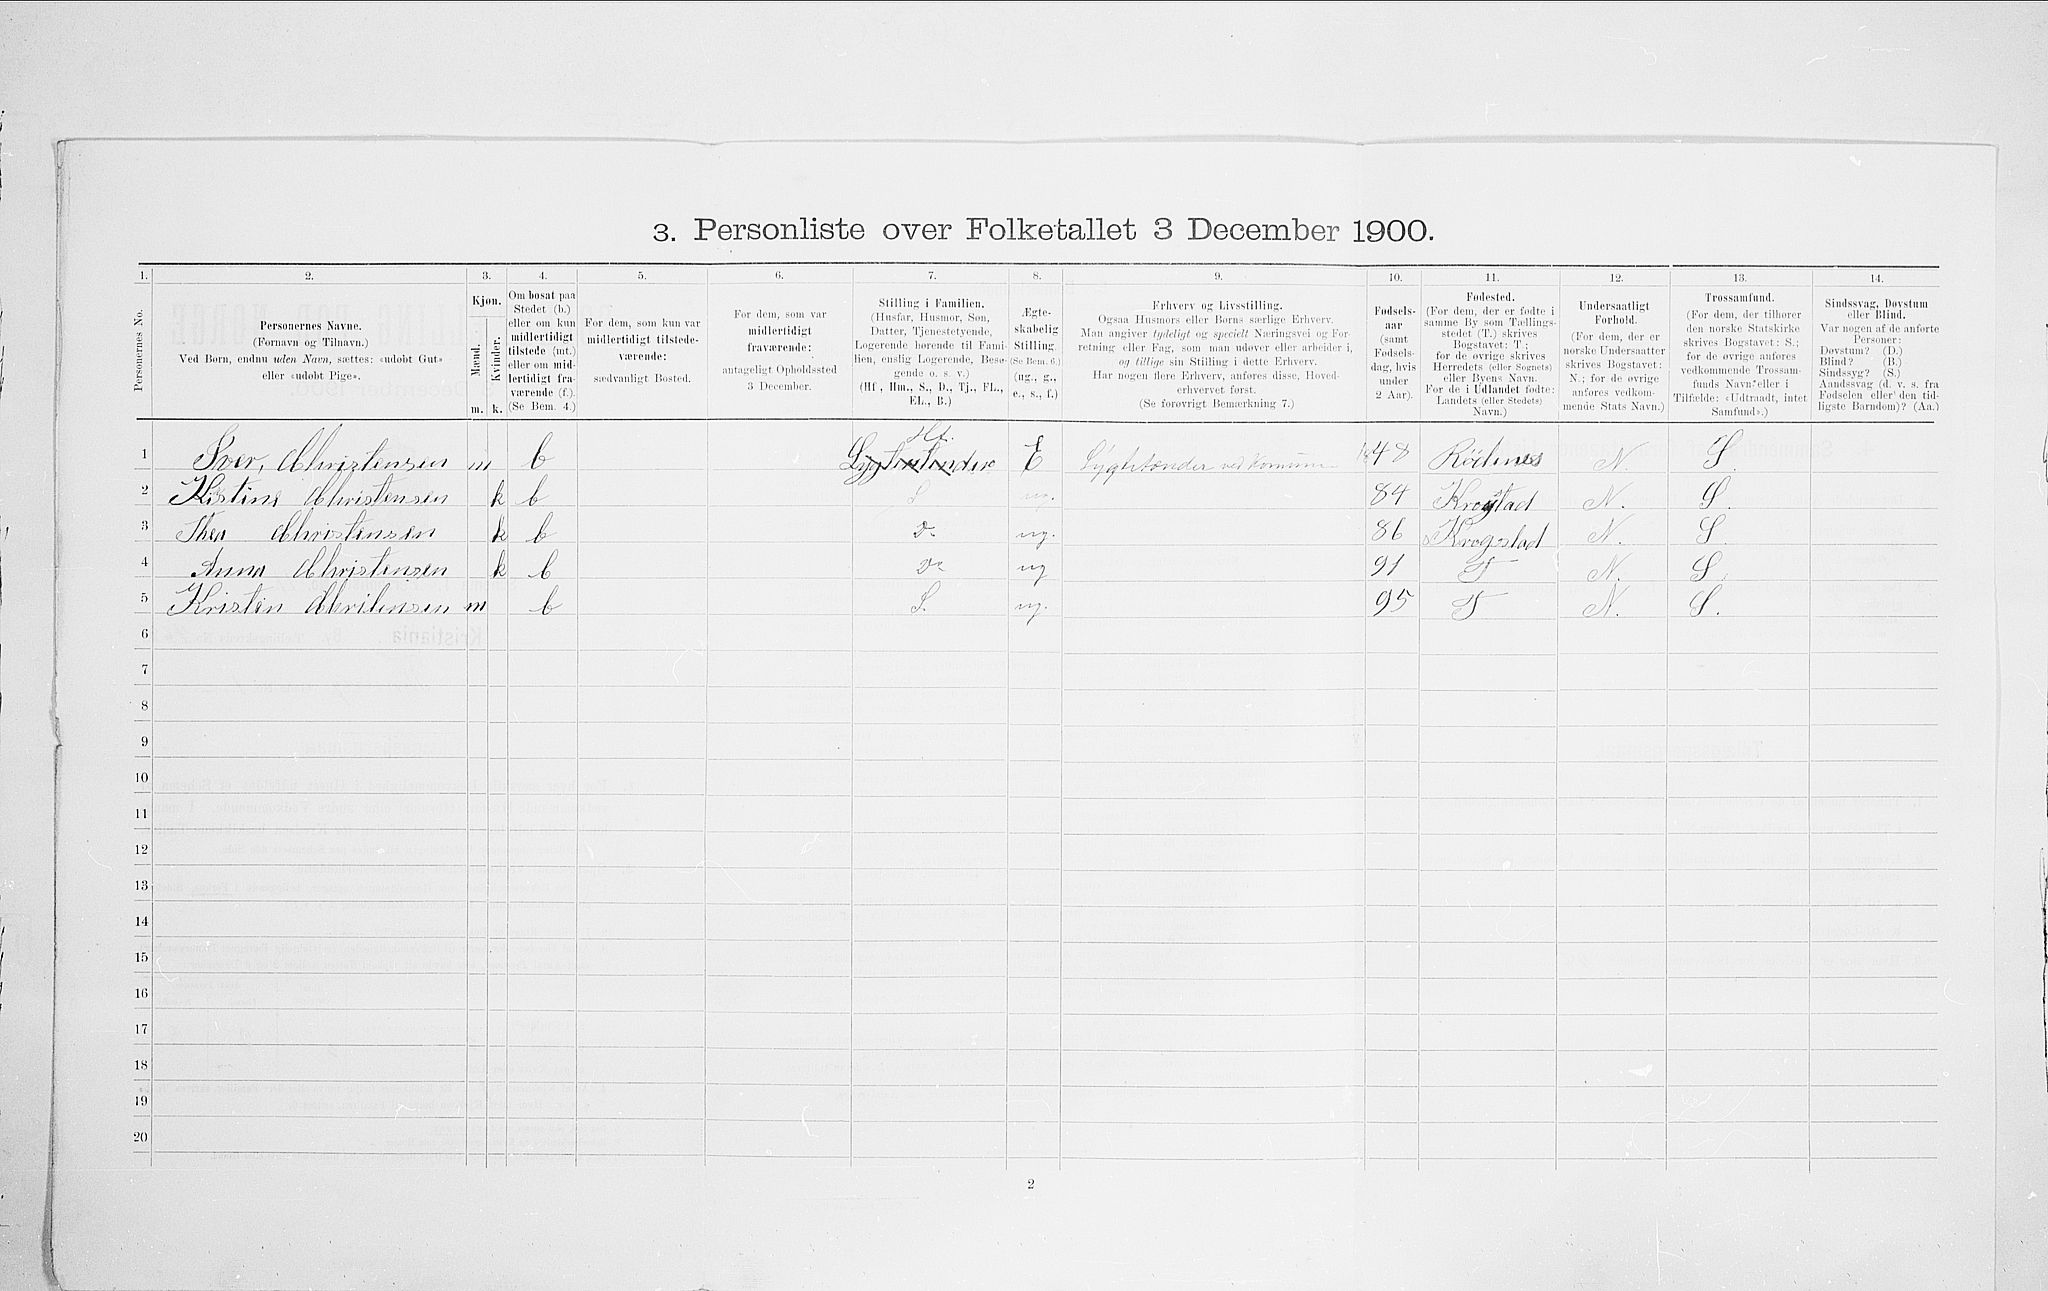 3. Personliste over Folketallet 3 December 1900.
1. 2. 3. 4. 5. 6. 7. 8. 9. 10. 11. 12. 13. 14.
Personernes No.
Personernes Navne.
(Fornavn og Tilnavn.)
Ved Børn, endnu uden Navn, sættes: «udøbt Gut»
eller «udøbt Pige».
Kjøn.
Mænd.
Kvinder.
m. k.
Om bosat paa
Stedet (b.)
eller om kun
midlertidigt
tilstede (mt.)
eller om mid-
lertidigt fra-
værende (f.)
(Se Bem. 4.)
For dem, som kun var
midlertidigt tilstede-
værende:
sædvanligt Bosted.
For dem, som var
midlertidigt
fraværende:
antageligt Opholdssted
3 December.
Stilling i Familien.
(Husfar, Husmor, Søn,
Datter, Tjenestetyende,
Logerende hørende til Fami-
lien, enslig Logerende, Besø-
gende o. s. v.)
(Hf., Hm., S., D., Tj., FL.,
EL., B.)
Ægte-
skabelig
Stilling.
(Se Bem. 6.)
(ug., g.,
e., s., f.)
Erhverv og Livsstilling.
Ogsaa Husmors eller Børns særlige Erhverv.
Man angiver tydeligt og specielt Næringsvei og For-
retning eller Fag, som man udøver eller arbeider i,
og tillige sin Stilling i dette Erhverv.
Har nogen flere Erhverv, anføres disse, Hoved-
erhvervet først.
(Se forøvrigt Bemærkning 7.)
Fødsels-
aar
(samt
Fødsels-
dag, hvis
under
2 Aar).
Fødested.
(For dem, der er fødte i
samme By som Tællings-
stedet (T.) skrives
Bogstavet: T.;
for de øvrige skrives
Herredets (eller Sognets)
eller Byens Navn.
For de i Udlandet fødte:
Landets (eller Stedets)
Navn.)
Undersaatligt
Forhold.
(For dem, der er
norske Undersaatter
skrives Bogstavet:
N.; for de øvrige
anføres vedkom-
mende Stats Navn.)
Trossamfund.
(For dem, der tilhører
den norske Statskirke
skrives Bogstavet: S.;
for de øvrige anføres
vedkommende Trossam-
funds Navn eller i
Tilfælde: «Udtraadt, intet
Samfund».)
Sindssvag, Døvstum
eller Blind.
Var nogen af de anførte
Personer:
Døvstum? (D.)
Blind? (B.)
Sindssyg? (S.)
Aandssvag (d. v. s. fra
Fødselen eller den tid-
ligste Barndom)? (Aa.)
Hf.
1 Iver, Christensen m b Lygtentender E Lygtetænder ved Komunen 1848 Rödenes N. S.
2 Kistine Christensen k b ug. 84 Krogstad N. S.
3 Thea Christensen k b D. ug. 86 Krogstad N. S.
4 Anna Christensen k b D. ug 91 T N. S.
5 Kristen Chritensen m b S. ug. 95 T N. S.
6
7
8
9
10
11
12
13
14
15
16
17
18
19
20
2